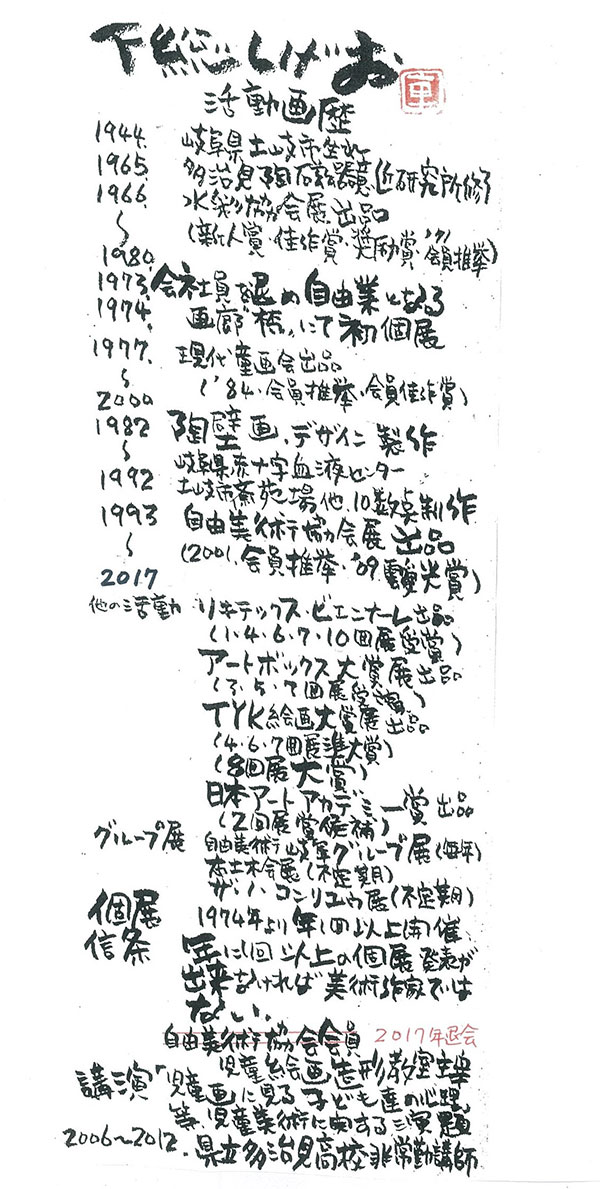 下総しげお
活動画歴
1944. 岐阜県土岐市生れ
1965. 多治見陶磁器意匠研究所修了
1966. 水彩協会展.出品
〜 (新人賞・佳作賞・奨励賞・会員推挙)
1980.
1973. 会社員を退め自由業となる
1974. 画廊橘にて初個展
1977. 現代童画会出品
〜 ('84.会員推挙.会員佳作賞)
2000
1982 陶壁画.デザイン製作
〜 岐阜県赤十字血液センター
1992 土岐市斎苑場他.10数点制作
1993 自由美術協会展出品
〜 (2001.会員推挙.'09.靉光賞)
2017
他の活動 リキテックス・ビエンナーレ出品
(1・4・6・7・10回展受賞)
アートボックス大賞展出品
(3・5・7回展受賞)
TYK絵画大賞展出品
(4・6・7回展準大賞)
(8回展大賞)
日本アートアカデミー賞出品
(2回展賞候補)
グループ展 自由美術岐阜グループ展(毎年)
土木会展(不定期)
コンリュウ展(不定期)
個展 1974年より年1回以上開催
信条 年に1回以上の個展発表が
出来なければ美術作家では
ない.
自由美術協会会員 2017年退会
児童絵画造形教室主宰
講演「児童画に見る子ども達の心理」
等.児童美術に関する演題
2006〜2012. 県立多治見高校非常勤講師